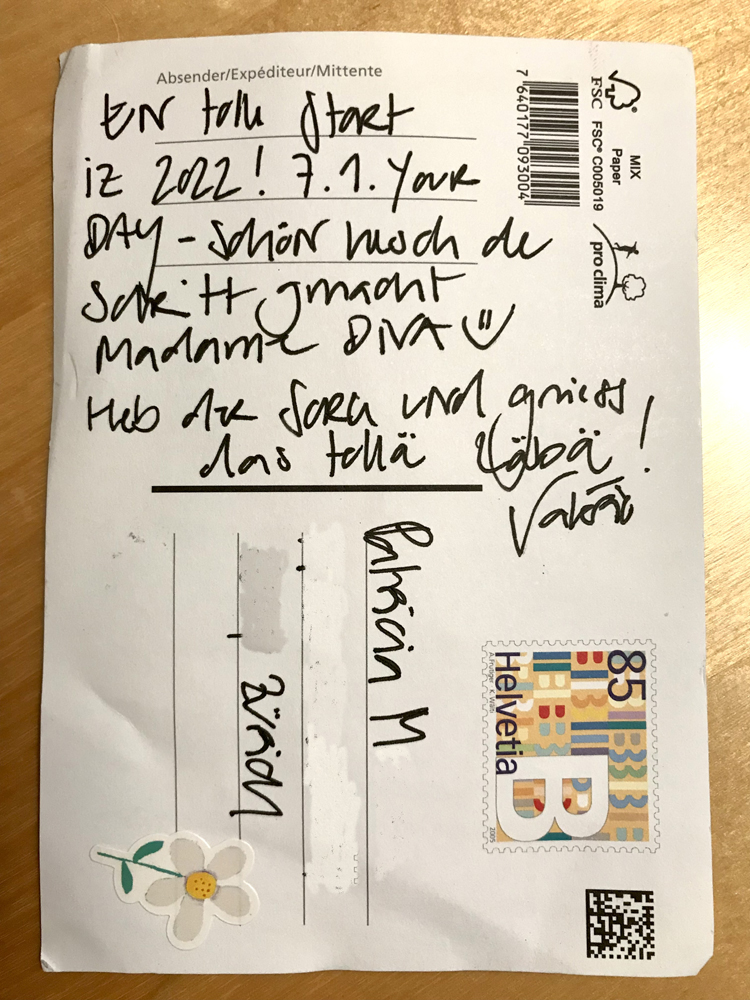 Absender/Expéditeur/Mittente
EN tolle Start
iZ 2022! 7.1. Your
DAY - schön hesch de
Schritt gmacht
Madame DIVA
Heb der Sorg und gniess
das tollä Läbä!
7 640177 093004
FSC
FSC® C005019
MIX
Paper
pro clima
Patricia M
Zürich
85
Helvetia
B
2005